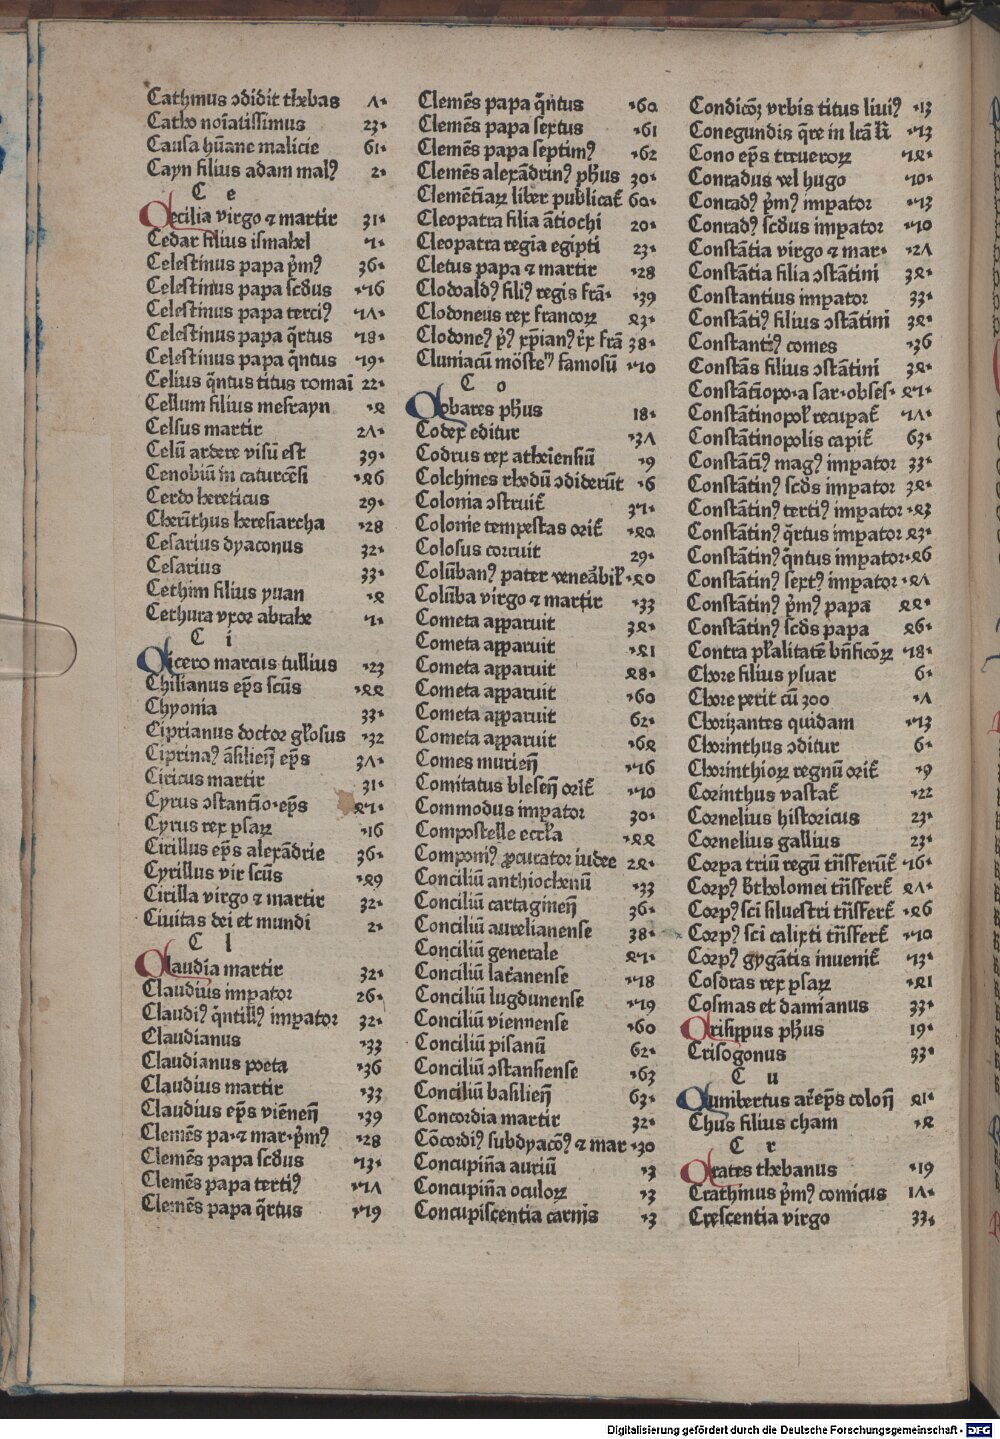 Cathmus ↄdidit thebas ·Λ·
Catho noīatissimus 23·
Causa hūane malicie 61·
Cayn filius adam malꝰ 2·
C e
Cecilia virgo ⁊ martir 31·
Cedar filius ismahel ·7·
Celestinus papa p̄mꝰ 36·
Celestinus papa scd̄us ·16
Celestinus papa terciꝰ ·1Λ·
Celestinus papa q̄rtus ·18·
Celestinus papa q̄ntus ·19·
Celius q̄ntus titus romaī 22·
Cellum filius mesrayn ·ջ
Celsus martir 2Λ·
Celū ardere visū est 39·
Cenobiū in caturcēsi ·ջ6
Cerdo hereticus 29·
Cherīthus heresiarcha ·28
Cesarius dyaconus 32·
Cesarius 33·
Cethim filius yuan ·ջ
Cethura vxor abrahe ·7·
C i
Cicero marcus tullius ·23
Chilianus ep̄s scūs ·ջջ
Chyonia 33·
Ciprianus doctor gl̄osus ·32
Ciprinaꝰ 3Λ·
Ciricus martir 31·
Cyrus ↄstantīo·ep̄s ջ7·
Cyrus rex psaꝝ ·16
Cirillus ep̄s alexādrie 36·
Cyrillus vir scūs ·ջ9
Cirilla virgo ⁊ martir 32·
Ciuitas dei et mundi 2·
C l
Claudia martir 32·
Claudius impator 26·
Claudiꝰ q̄ntillꝰ impator 32·
Claudianus ·33
Claudianus poeta ·36
Claudius martir ·33
Claudius ep̄s viēneñ ·39
Clemēs pa·⁊ mar·p̄mꝰ ·28
Clemēs papa scd̄us ·13·
Clemēs papa tertiꝰ ·1Λ
Clemēs papa q̄rtus ·19
Clemēs papa q̄ntus ·60
Clemēs papa sextus ·61
Clemēs papa septimꝰ ·62
Clemēs alexādrinꝰ ph̄us 30·
Clemētiaꝝ liber publicat̄ 60·
Cleopatra filia ātiochi 20·
Cleopatra regīa egipti 23·
Cletus papa ⁊ martir ·28
Clodoaldꝰ filiꝰ regis frā· ·39
Clodoneus rex francoꝝ ջ3·
Clodoneꝰ p̄ꝰ xp̄ianꝰ r̄x frā 38·
Cluniacū famosū ·10
C o
Cobares ph̄us 18·
Codex editur ·3Λ
Codrus rex atheiensiū ·9
Colchines rhodū ↄdiderūt ·6
Colonia ↄstruit̄ 37·
Colonie tempestas orit̄ ·ջ0
Colosus corruit 29·
Colūbanꝰ pater veneābil̄ ·ջ0
Colūba virgo ⁊ martir ·33
Cometa apparuit 3ջ·
Cometa apparuit ·ջ1
Cometa apparuit ջ8·
Cometa apparuit ·60
Cometa apparuit 62·
Cometa apparuit ·6ջ
Comes murieñ ·16
Comitatus bleseñ orit̄ ·10
Commodus impator 30·
Compostelle eccl̄a ·ջջ
Componiꝰ ꝓcurator iudee 2ջ·
Conciliū anthiochenū ·33
Conciliū cartagineñ 36·
Conciliū aurelianense 38·
Conciliū generale ջ7·
Conciliū lat̄anense ·18
Conciliū lugdunense ·19
Conciliū viennense ·60
Conciliū pisanū 62·
Conciliū ↄstansiense ·63
Conciliū basilieñ 63·
Concordia martir 32·
Cōcordiꝰ subdyacōꝰ ⁊ mar ·30
Concupīna auriū ·3
Concupīna oculoꝝ ·3
Concupiscentia carnis ·3
Condicōꝝ vrbis titus liuiꝰ ·13
Conegundis q̄re in lrā k̄ ·13
Cono ep̄s treueroꝝ ·1ջ·
Conradus vel hugo ·10·
Conradꝰ p̄mꝰ impator ·13
Conradꝰ scd̄us impator ·10
Constātia virgo ⁊ mar· ·2Λ
Constātia filia ↄstātini 3ջ·
Constantius impator 33·
Constātiꝰ filius ↄstātini 3ջ·
Constantiꝰ comes ·36
Constās filius ↄstātini 3ջ·
Constātīopo·a sar·obses· ·ջ7·
Constātinopol̄ recupat̄ ·1Λ·
Constātinopolis capit̄ 63·
Constātīꝰ magꝰ impator 33·
Constātinꝰ scd̄s impator 3ջ·
Constātinꝰ tertiꝰ impator ·ջ3
Constātinꝰ q̄rtus impator ջ3·
Constātinꝰ q̄ntus impator ·ջ6
Constātinꝰ sextꝰ impator ·ջΛ
Constātinꝰ p̄mꝰ papa ջջ·
Constātinꝰ scd̄s papa ջ6·
Contra pl̄alitatē bn̄ficōꝝ ·18·
Chore filius ysuar 6·
Chore perit cū 300 ·Λ
Chorizantes quidam ·13
Chorinthus ↄditur 6·
Chorinthioꝝ regnū orit̄ ·9
Corinthus vastat̄ ·22
Cornelius historicus 23·
Cornelius gallius 23·
Corpa triū regū trn̄sferūt̄ ·16·
Corpꝰ b̄tholomei trn̄sfert̄ ջΛ·
Corpꝰ sci̅ siluestri trn̄sfert̄ ·ջ6
Corpꝰ sci̅ calixti trn̄sfert̄ ·10
Corpꝰ gygātis inuenit̄ ·13·
Cosdras rex psaꝝ ·ջ1
Cosmas et damianus 33·
Crisippus ph̄us 19·
Crisogonus 33·
C u
Cumibertus ar̄ep̄s coloñ ջ1·
Chus filius cham ·ջ
C r
Crates thebanus ·19
Crathinus p̄mꝰ comicus 1Λ·
Crescentia virgo 33·
Digitalisierung gefördert durch die Deutsche Forschungsgemeinschaft - DFG